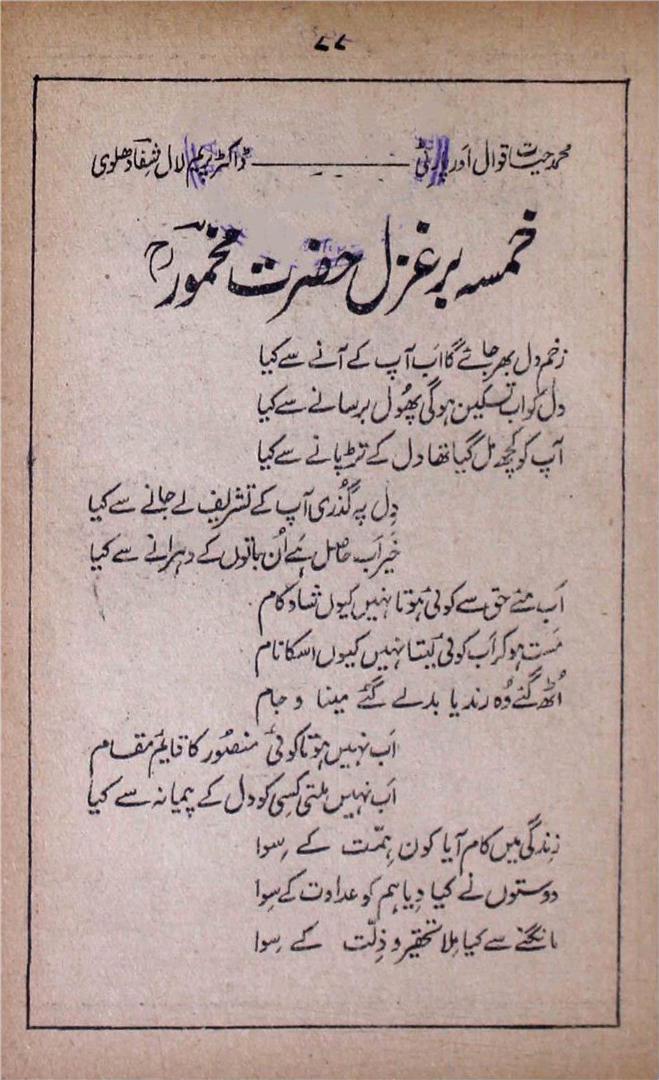 ۸۸
محمد حیات قوال اور پارٹی ——— ڈاکٹر پریم لال شفا دھلوی
خمسہ بر غزل حضرت مخمور رح
زخم دل بھر جائے گا اَب آپ کے آنے سے کیا
دل کو اب تسکین ہوگی پھُول برسانے سے کیا
آپ کو کچھ مل گیا تھا دل کے تڑپانے سے کیا
دِل پہ گذُری آپ کے تشریف لے جانے سے کیا
خیر اَب حاصل ہے اُن باتوں کے دہرانے سے کیا
اَب مئے حق سے کوئی ہوتا نہیں کیوں شاد کام
مَست ہو کر اَب کوئی لیتا نہیں کیوں اسکا نام
اُٹھ گئے وُہ رند یا بدلے گئے مینا و جام
اَب نہیں ہوتا کوئی منصُور کا قایم مقام
اَب نہیں ملتی کِسی کو دل کے پیمانہ سے کیا
زِندگی میں کام آیا کون ہمّت کے سِوا
دوستوں نے کیا دِیا ہم کو عداوت کے سِوا
مانگنے سے کیا مِلا تحقیر و ذِلّت کے سِوا